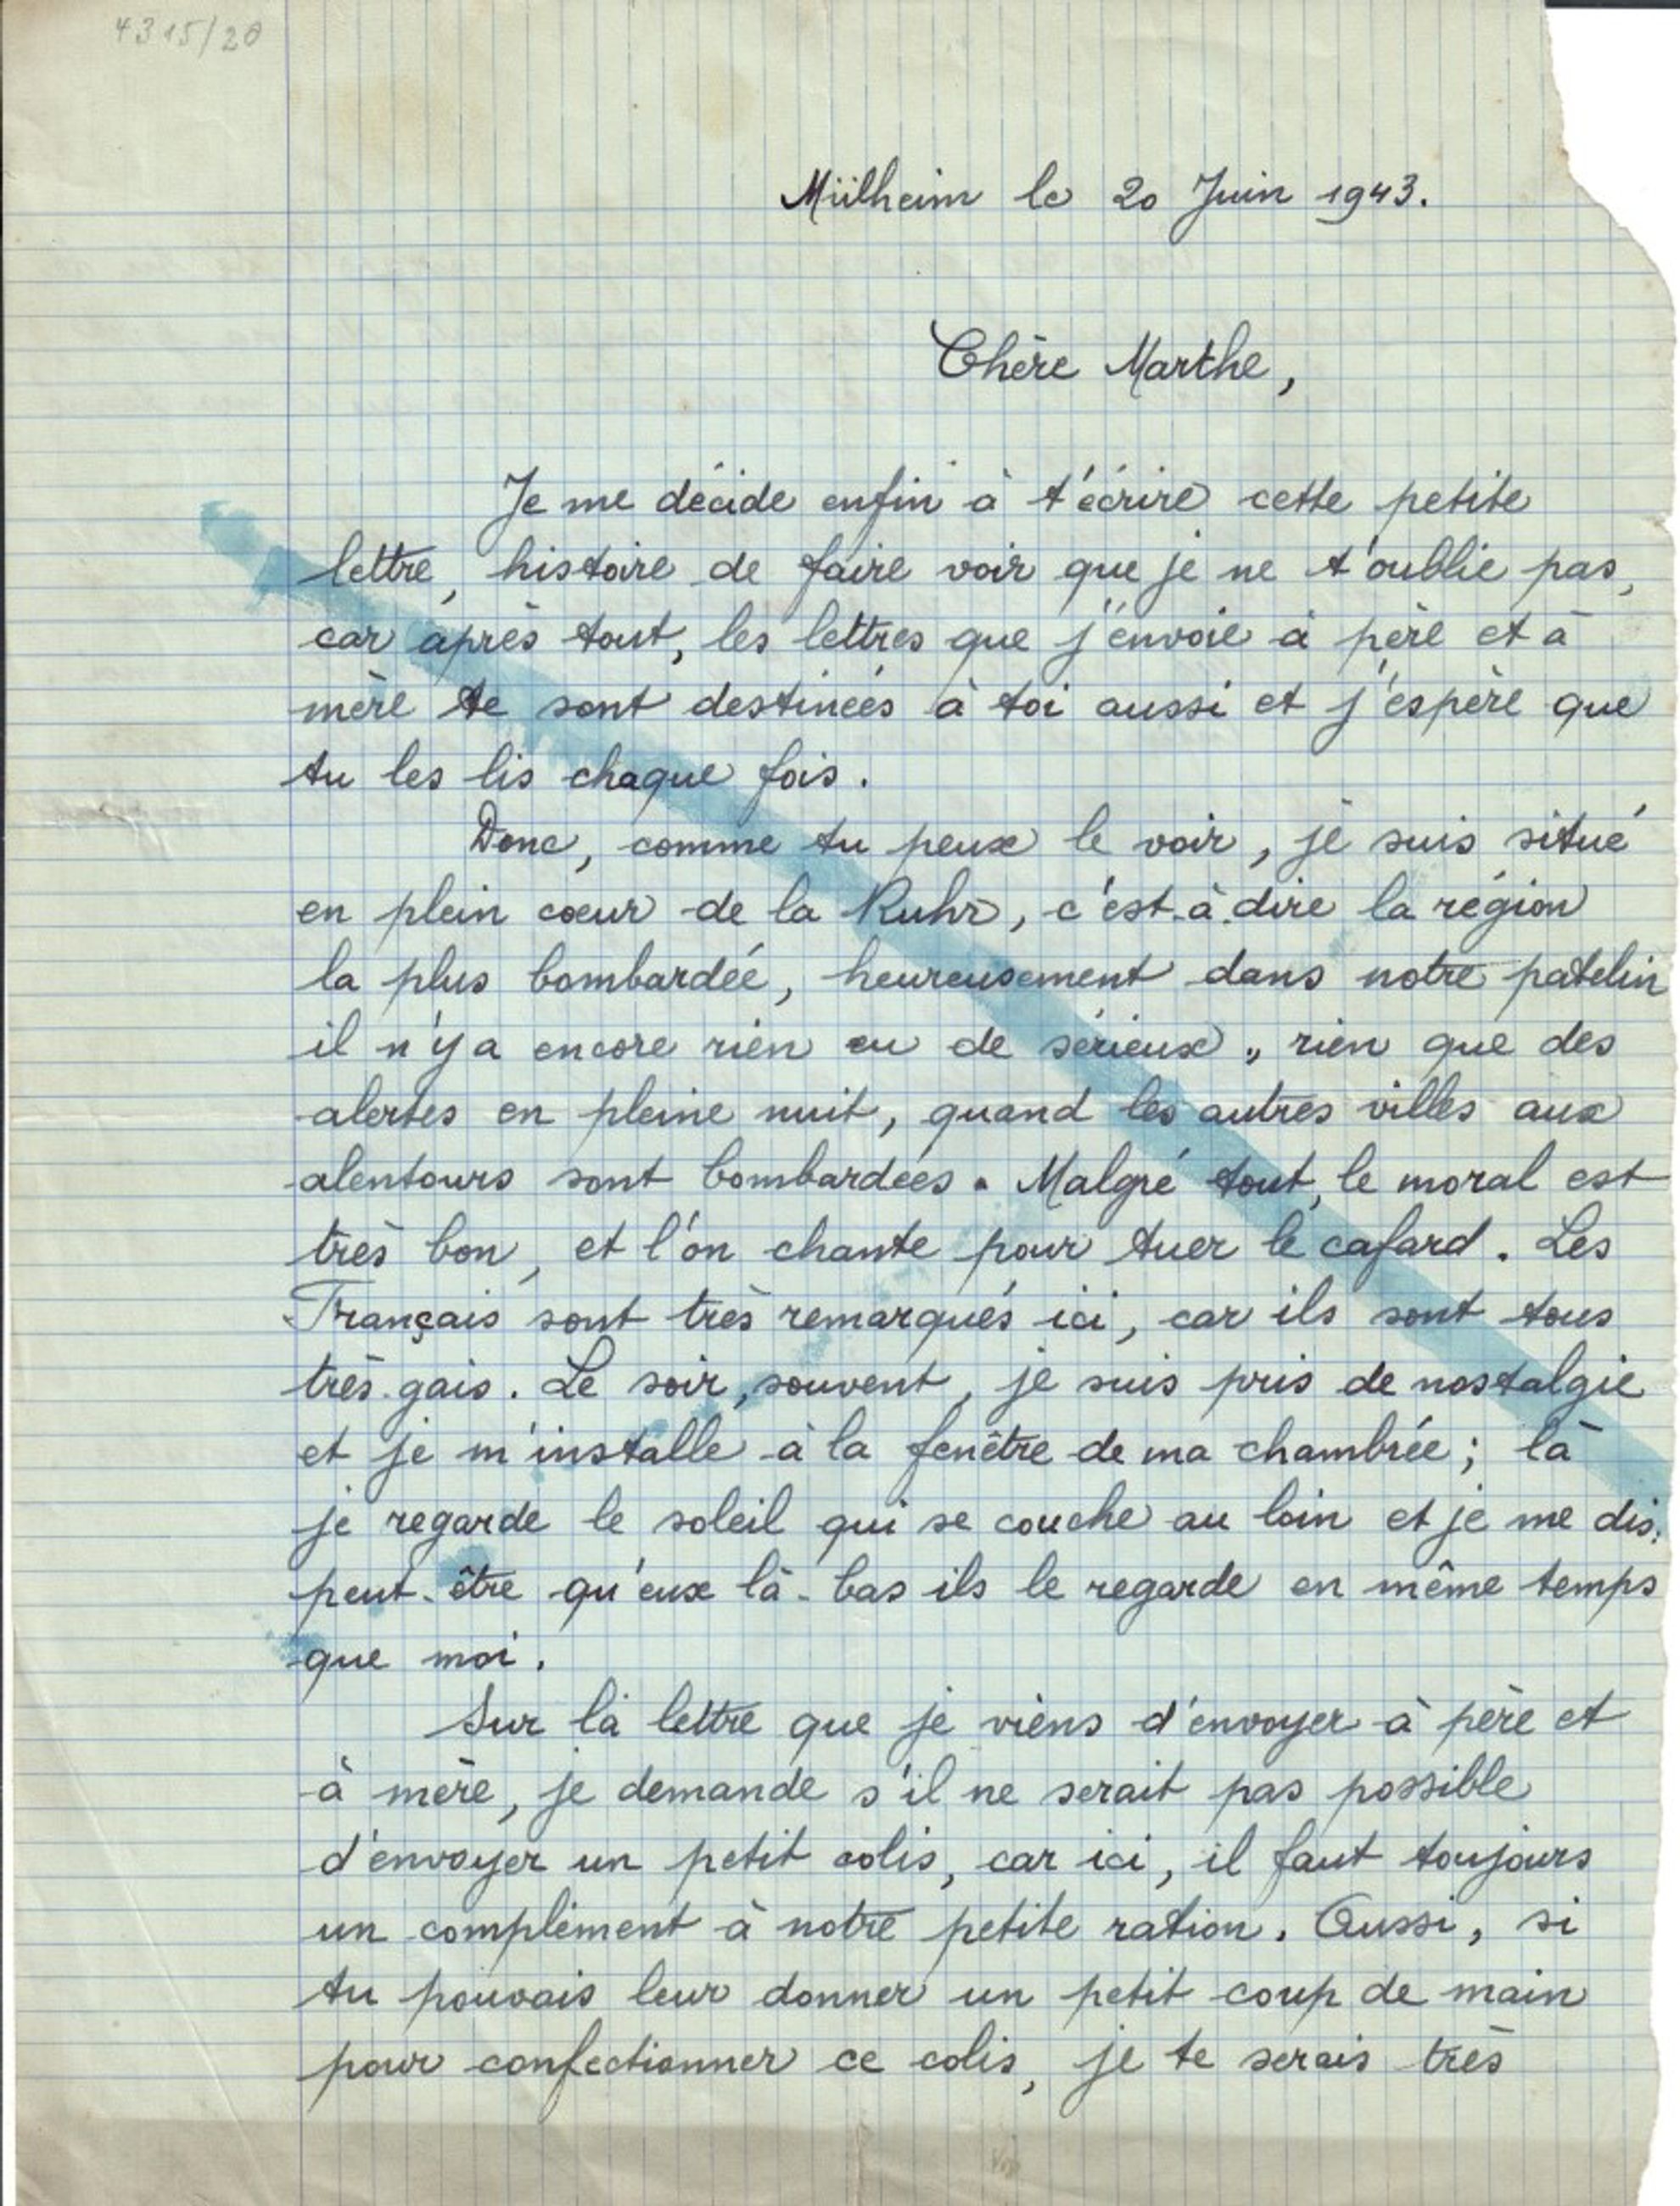 4315/20
Mülheim le 20 Juin 1943.
Chère Marthe,
Je me décide enfin à t'écrire cette petite
lettre, histoire de faire voir que je ne t'oublie pas,
car après tout, les lettres que j'envoie à père et à
mère te sont destinées à toi aussi et j'espère que
tu les lis chaque fois.
Donc, comme tu peux le voir, je suis situé
en plein cœur de la Ruhr, c'est-à-dire la région
la plus bombardée, heureusement dans notre patelin
il n'y a encore rien eu de sérieux, rien que des
alertes en pleine nuit, quand les autres villes aux
alentours sont bombardées. Malgré tout, le moral est
très bon, et l'on chante pour tuer le cafard. Les
Français sont très remarqués ici, car ils sont tous
très gais. Le soir, souvent, je suis pris de nostalgie
et je m'installe à la fenêtre de ma chambrée; là
je regarde le soleil qui se couche au loin et je me dis:
peut-être qu'eux là-bas ils le regarde en même temps
que moi.
Sur la lettre que je viens d'envoyer à père et
à mère, je demande s'il ne serait pas possible
d'envoyer un petit colis, car ici, il faut toujours
un complément à notre petite ration. Aussi, si
tu pouvais leur donner un petit coup de main
pour confectionner ce colis, je te serais très